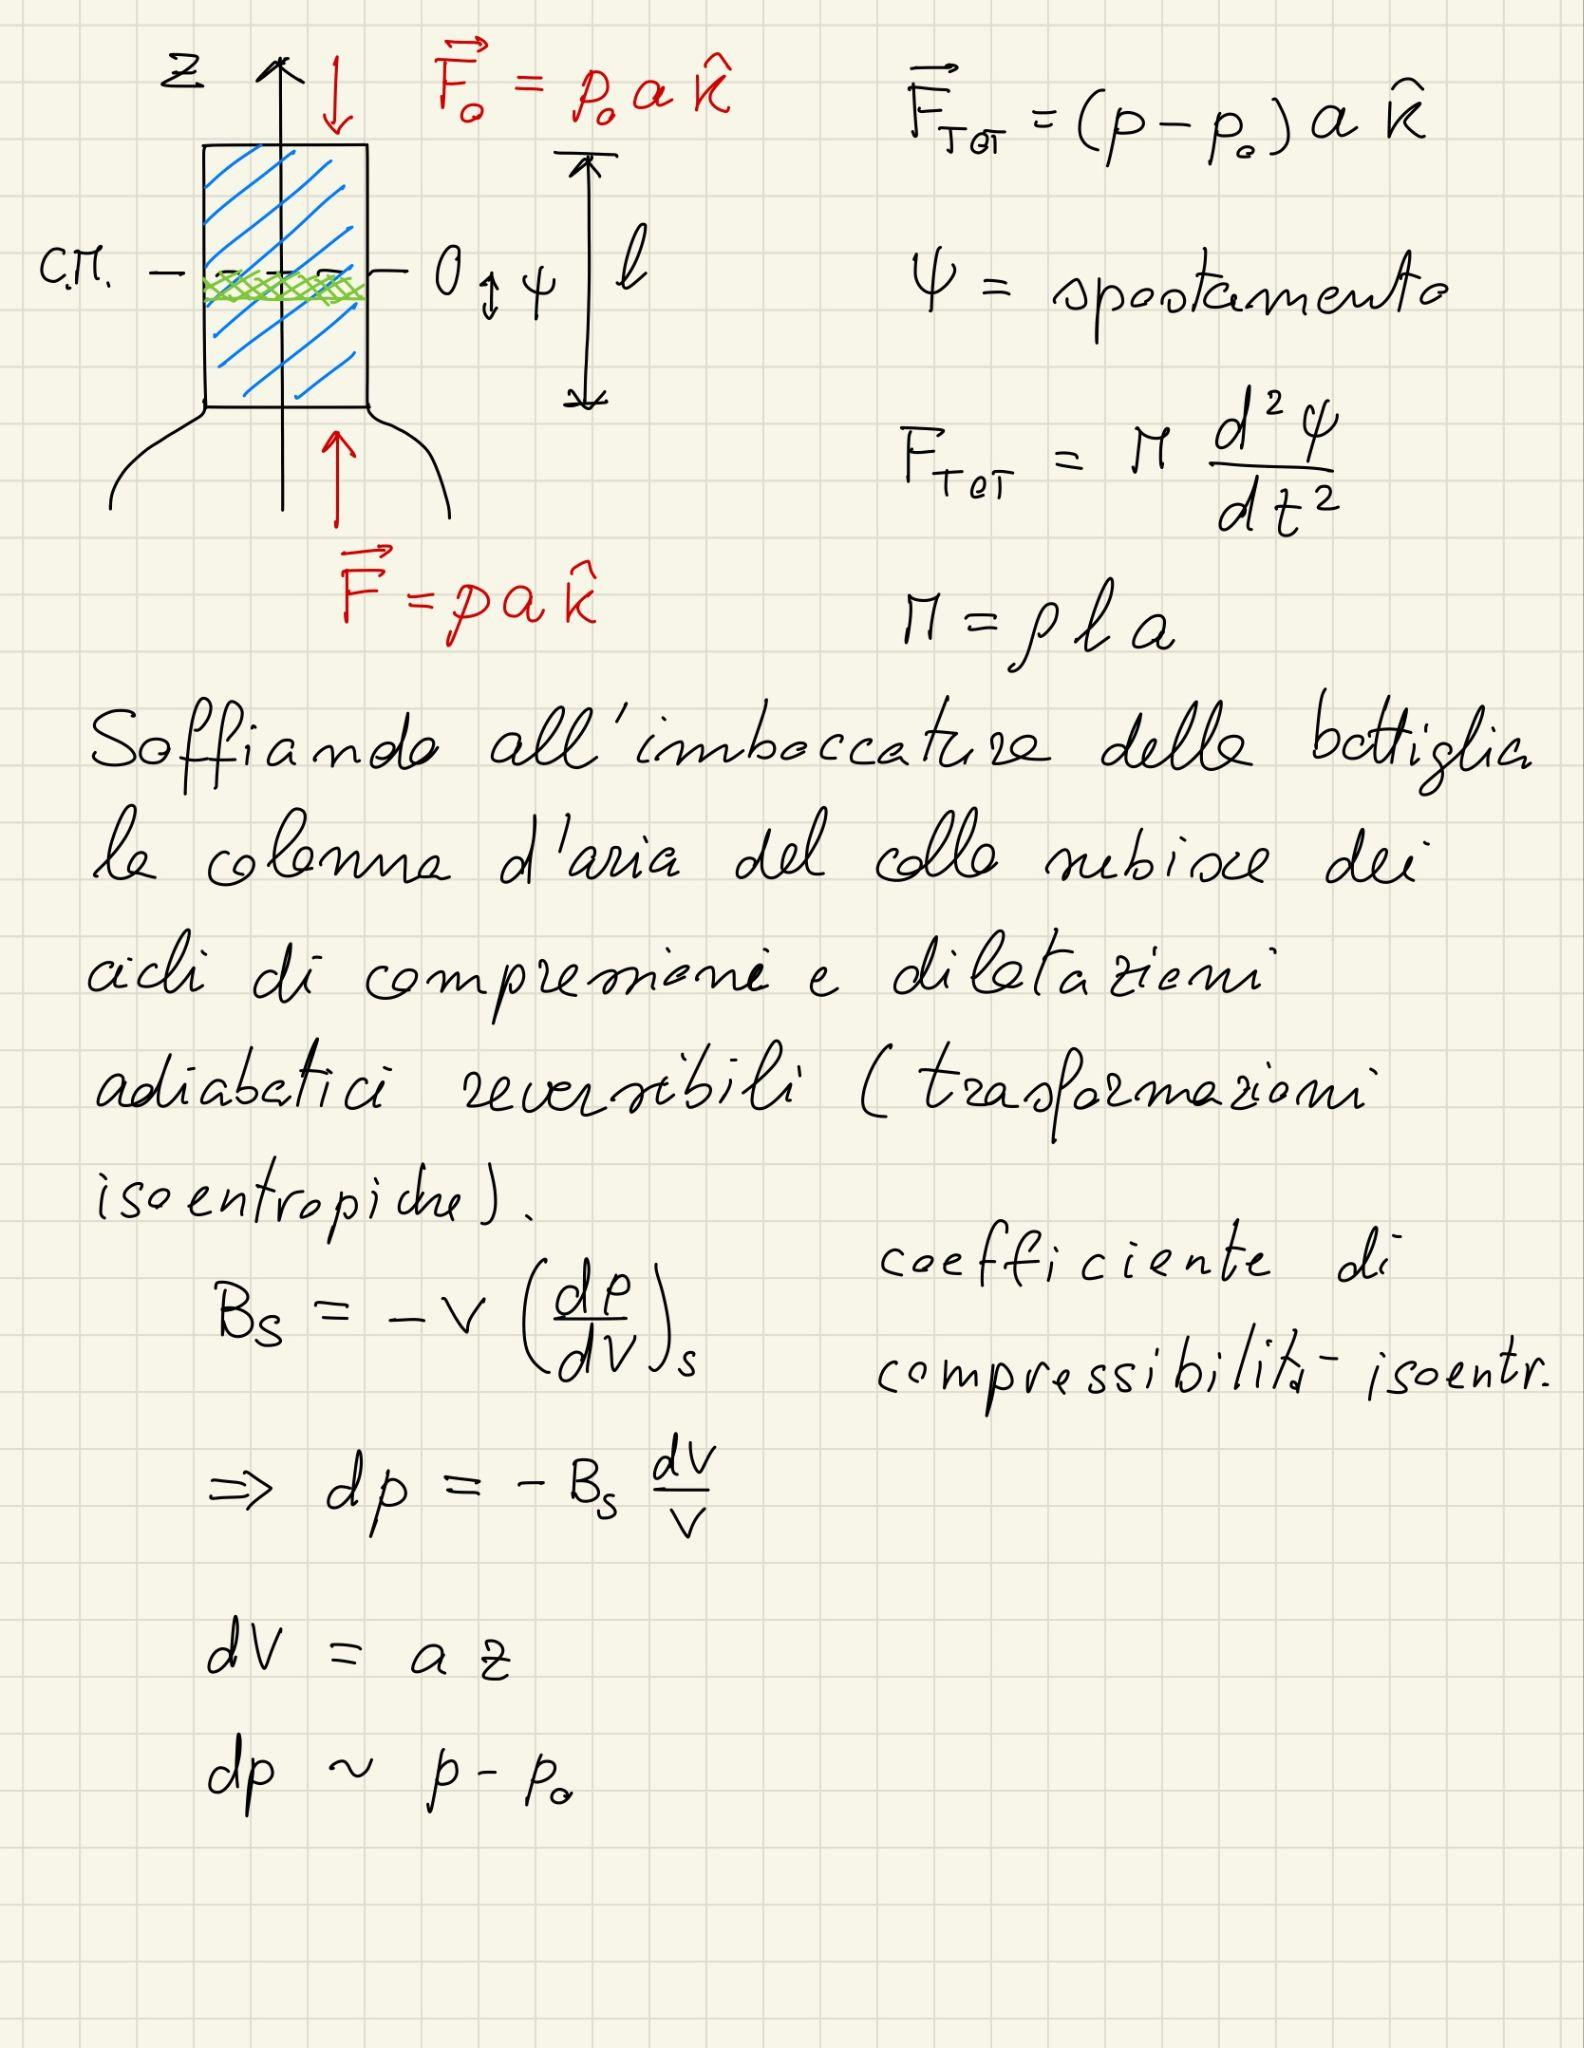 z
F₀ = p₀ a k̂
C.M.
0
ψ
l
F = p a k̂
F_TOT = (p - p₀) a k̂
ψ = spostamento
F_TOT = M d²ψ / dt²
M = ρ l a
Soffiando all'imboccatura della bottiglia
la colonna d'aria del collo subisce dei
cicli di compressioni e dilatazioni
adiabatici reversibili (trasformazioni
isoentropiche).
B_S = - V (dp/dV)_S
coefficiente di
compressibilità isoentr.
⇒ dp = - B_S dV/V
dV = a z
dp ~ p - p₀